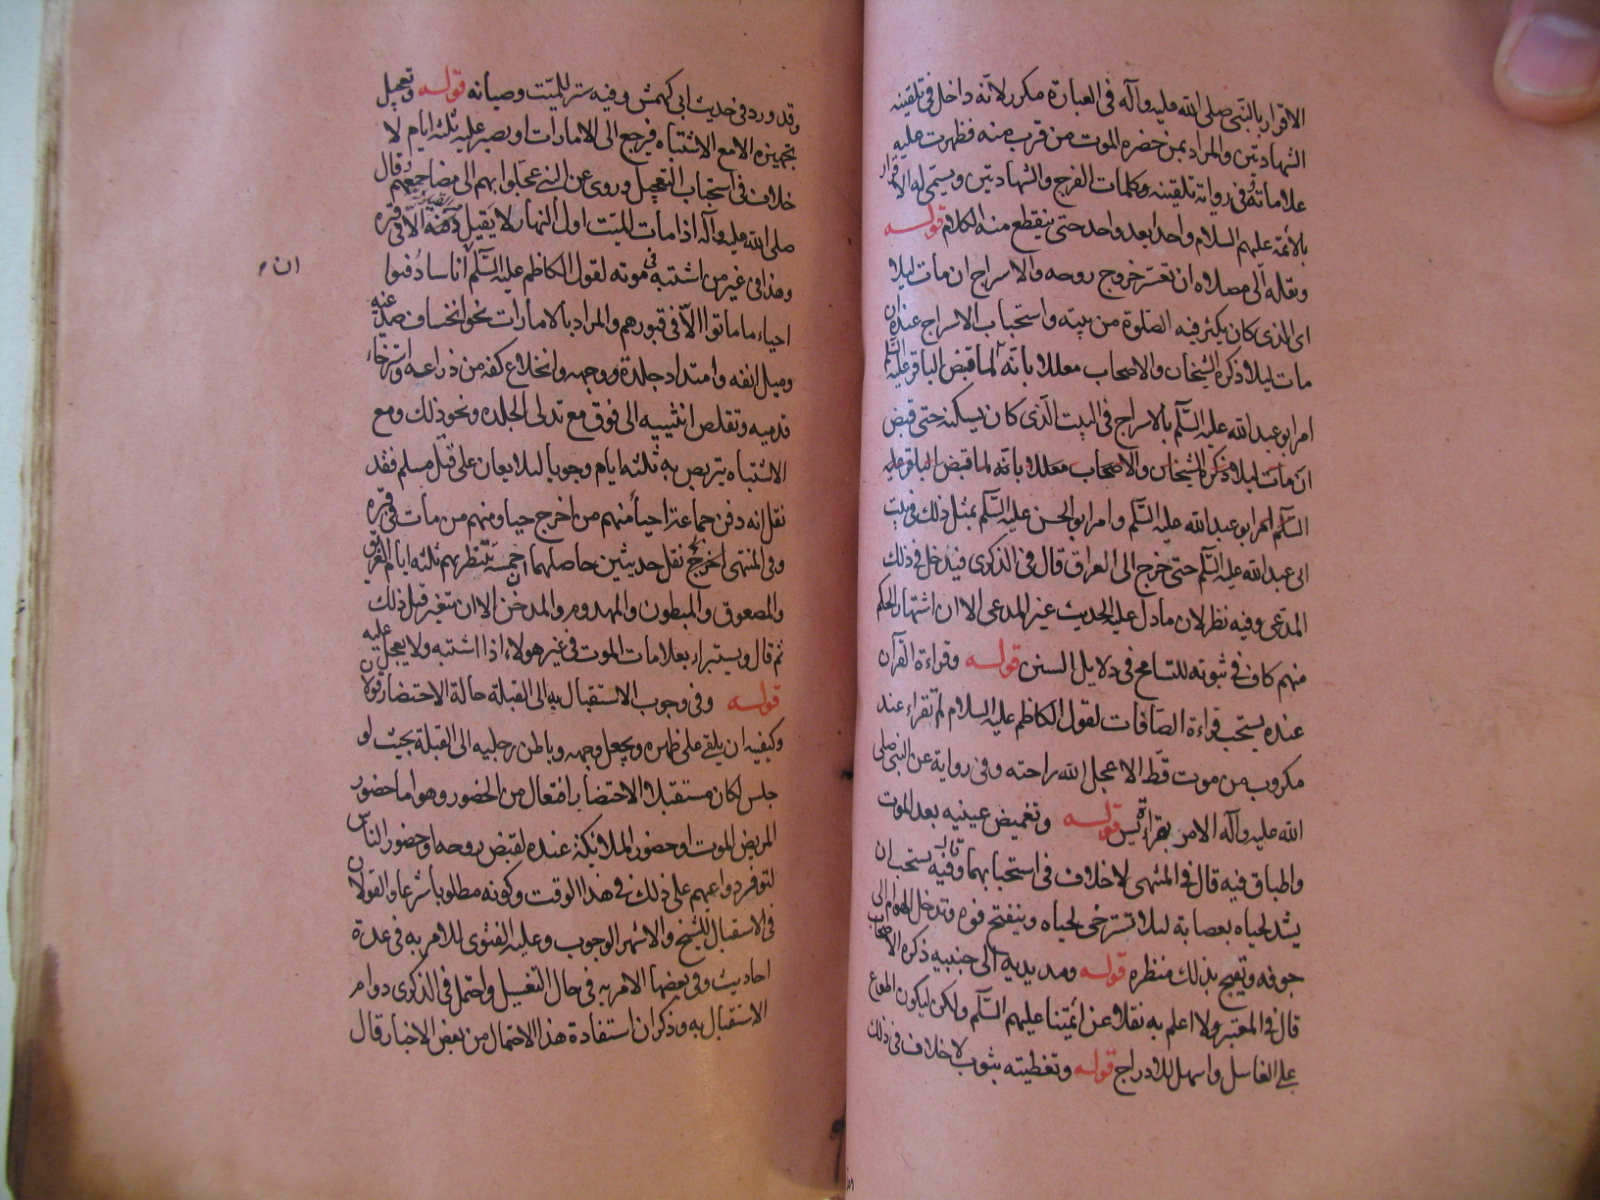 الاقرار بالنبي صلى الله عليه وآله في العبارة مكرر لانه داخل في تلقينه
الشهادتين والمراد بمن حضره الموت من قرب منه فظهرت عليه
علاماته وفي رواية تلقينه كلمات الفرج والشهادتين ويسمى له الاقرار
بالائمة عليهم السلام واحدا بعد واحد حتى ينقطع منه الكلام قوله
ونقله الى مصلاه ان تعسر خروج روحه والاسراج ان مات ليلا
اى الذى كان يكثر فيه الصلوة من بيته واستحباب الاسراج عنده ان
مات ليلا ذكره الشيخان والاصحاب معللا بانه لما قبض الباقر عليه السلام
امر ابو عبدالله عليه السلم بالاسراج في البيت الذى كان يسكنه حتى قبض
ان مات ليلا ذكره الشيخان والاصحاب معللا بانه لما قبض الباقر عليه
السلم امر ابو عبدالله عليه السلم وامر ابو الحسن عليه السلم بمثل ذلك في بيت
ابى عبدالله عليه السلم حتى خرج الى العراق قال في الذكرى فيدخل في ذلك
المدعى وفيه نظر لان مادل عليه الحديث غير المدعى الا ان اشتهار الحكم
منهم كاف في ثبوته للتسامح في دلايل السنن قوله وقراءة القرآن
عنده يستحب قراءة الصافات لقول الكاظم عليه السلام لم تقراء عند
مكروب من موت قط الا عجل الله راحته وفي رواية عن النبي صلى
الله عليه وآله الامر بقراءة يس قوله وتغميض عينيه بعد الموت
واطباق فيه قال في المنتهى لاخلاف في استحبابهما وفيه قال يستحب ان
يشد لحياه بعصابة ليلا تسترخى لحياه وينفتح فوه وتدخل الهوام الى
جوفه ويقبح بذلك منظره قوله ومد يديه الى جنبيه ذكره الاصحاب
قال في المعتبر ولا اعلم به نقلا عن ائمتنا عليهم السلم ولكن ليكون اطوع
على الغاسل واسهل للادراج قوله وتغطيته بثوب لاخلاف في ذلك
وقد ورد في حديث ابى كهمش وفيه ستر للميت وصيانه قوله وتعجيل
تجهيزه الا مع الاشتباه فيرجع الى الامارات او يصبر عليه ثلثه ايام لا
خلاف في استحباب التعجيل وروى عن النبي عجلوا بهم الى مضاجعهم وقال
صلى الله عليه وآله اذا مات الميت اول النهار لا يقيل الا في قبره
وهذا في غير من اشتبه في موته لقول الكاظم عليه السلم ان اناسا دفنوا
احياء ما ماتوا الا في قبورهم والمراد بالامارات نحو انخساف صدغيه
وميل انفه وامتداد جلدة ووجهه وانخلاع كفه من ذراعه واسترخاء
قدميه وتقلص انثييه الى فوق مع تدلى الجلده ونحو ذلك ومع
الاشتباه يتربص به ثلثه ايام وجوبا ليلا يعان على قتل مسلم فقد
نقل انه دفن جماعة احياء منهم من اخرج حيا ومنهم من مات في قبره
وفي المنتهى نقل حديثين حاصلهما ان خمسة ينتظر بهم ثلثه ايام الغريق
والمصعوق والمبطون والمهدوم والمدخن الا ان يتغير قبل ذلك
ثم قال ويستبراء بعلامات الموت في غير هولاء اذا اشتبه ولا يعجل عليه
قوله وفي وجوب الاستقبال به الى القبلة حالة الاحتضار قولان
وكيفيه ان يلقى على ظهره ويجعل وجهه وباطن رجليه الى القبلة بحيث لو
جلس لكان مستقبلا الاحتضار افتعال من الحضور وهو اما حضور
المريض الموت او حضور الملائكة عنده لقبض روحه او حضور الناس
لتوفر دواعيهم على ذلك في هذا الوقت وكونه مطلوبا شرعا والقولان
في الاستقبال للشيخ والاشهر الوجوب وعليه الفتوى للامر به في عدة
احاديث وفي بعضها الامر به في حال التغسيل واحتمل في الذكرى دوام
الاستقبال به وذكر ان استفادة هذا الاحتمال من بعض الاخبار قال